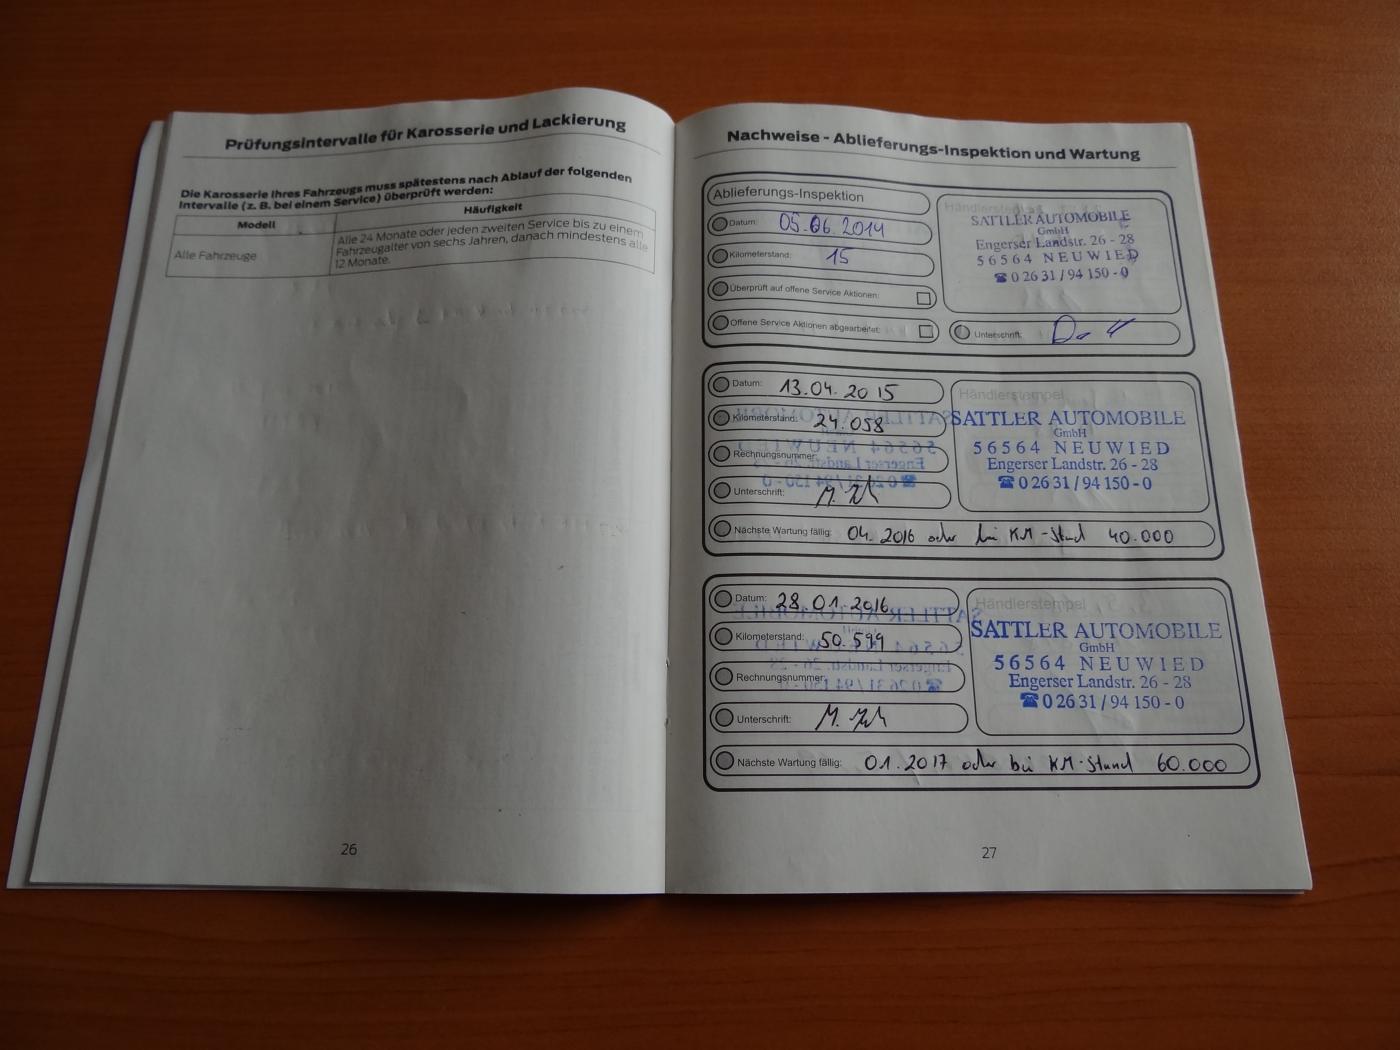 Prüfungsintervalle für Karosserie und Lackierung
Die Karosserie Ihres Fahrzeugs muss spätestens nach Ablauf der folgenden
Intervalle (z. B. bei einem Service) überprüft werden:
Modell
Häufigkeit
Alle Fahrzeuge
Alle 24 Monate oder jeden zweiten Service bis zu einem
Fahrzeugalter von sechs Jahren, danach mindestens alle
12 Monate.
26
Nachweise - Ablieferungs-Inspektion und Wartung
Ablieferungs-Inspektion
Datum: 05.06.2014
Kilometerstand: 15
Überprüft auf offene Service Aktionen:
Offene Service Aktionen abgearbeitet:
SATTLER AUTOMOBILE
GmbH
Engerser Landstr. 26 - 28
56564 NEUWIED
☎ 0 26 31 / 94 150 - 0
Unterschrift:
Datum: 13.04.2015
Kilometerstand: 24.058
Rechnungsnummer:
Unterschrift:
Händlerstempel
SATTLER AUTOMOBILE
GmbH
56564 NEUWIED
Engerser Landstr. 26 - 28
☎ 0 26 31 / 94 150 - 0
Nächste Wartung fällig: 04. 2016 oder bei KM-Stand 40.000
Datum: 28.01.2016
Kilometerstand: 50.599
Rechnungsnummer:
Unterschrift:
Händlerstempel
SATTLER AUTOMOBILE
GmbH
56564 NEUWIED
Engerser Landstr. 26 - 28
☎ 0 26 31 / 94 150 - 0
Nächste Wartung fällig: 01.2017 oder bei KM-Stand 60.000
27